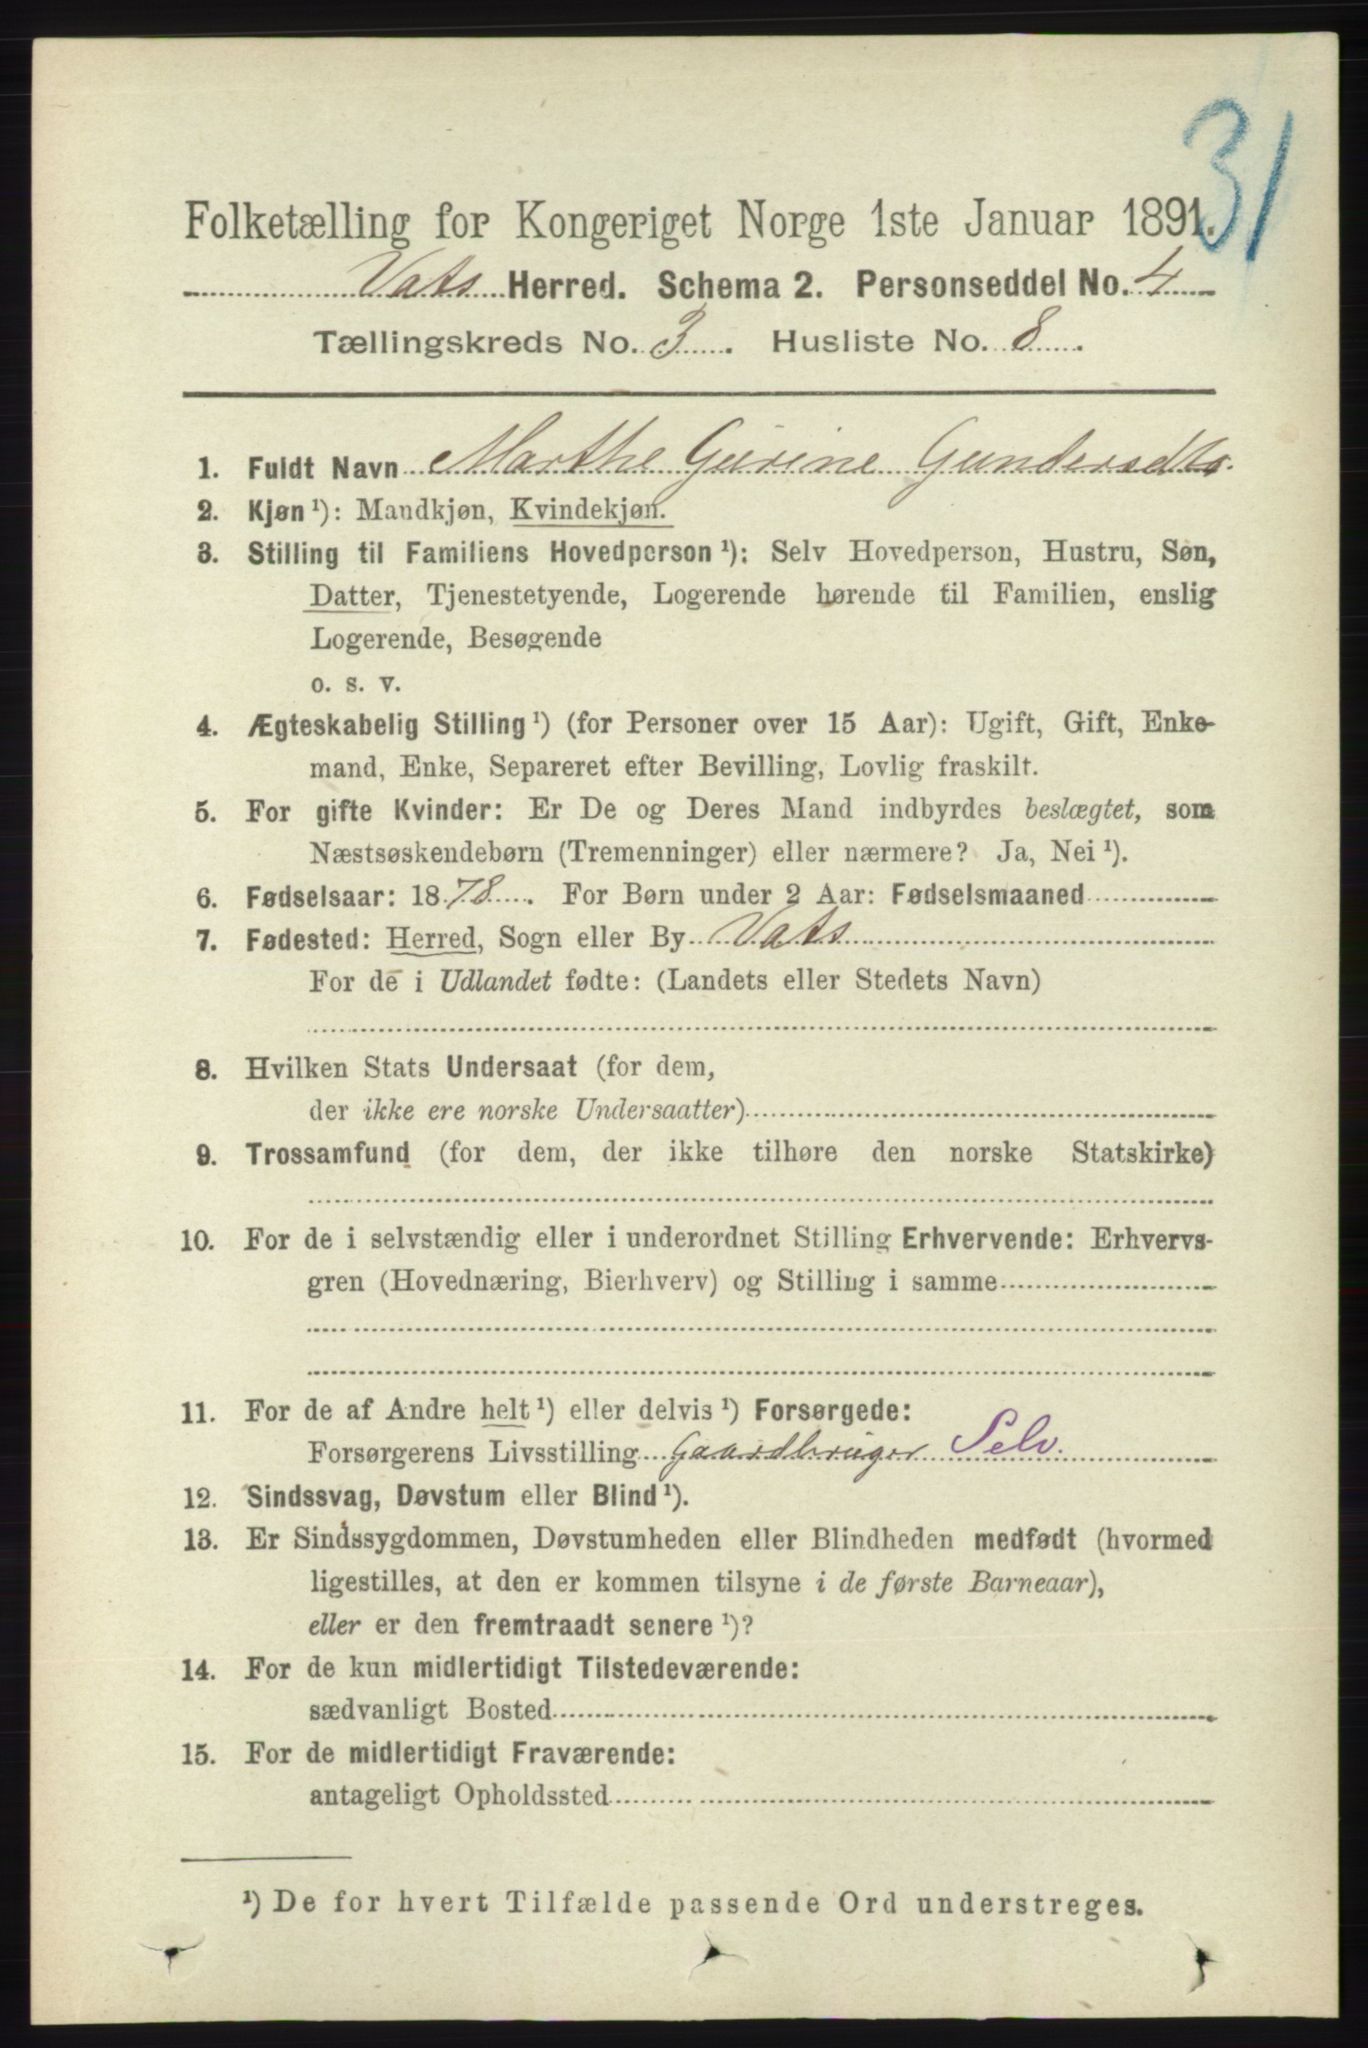 31
Folketælling for Kongeriget Norge 1ste Januar 1891.
Vats Herred. Schema 2. Personseddel No. 4
Tællingskreds No. 3. Husliste No. 8.
1. Fuldt Navn Marthe Gurine Gundersdtr.
2. Kjøn ¹): Mandkjøn, Kvindekjøn.
3. Stilling til Familiens Hovedperson ¹): Selv Hovedperson, Hustru, Søn,
Datter, Tjenestetyende, Logerende hørende til Familien, enslig
Logerende, Besøgende
o. s. v.
4. Ægteskabelig Stilling ¹) (for Personer over 15 Aar): Ugift, Gift, Enke-
mand, Enke, Separeret efter Bevilling, Lovlig fraskilt.
5. For gifte Kvinder: Er De og Deres Mand indbyrdes beslægtet, som
Næstsøskendebørn (Tremenninger) eller nærmere? Ja, Nei ¹).
6. Fødselsaar: 1878. For Børn under 2 Aar: Fødselsmaaned
7. Fødested: Herred, Sogn eller By Vats
For de i Udlandet fødte: (Landets eller Stedets Navn)
8. Hvilken Stats Undersaat (for dem,
der ikke ere norske Undersaatter)
9. Trossamfund (for dem, der ikke tilhøre den norske Statskirke)
10. For de i selvstændig eller i underordnet Stilling Erhvervende: Erhvervs-
gren (Hovednæring, Bierhverv) og Stilling i samme
11. For de af Andre helt ¹) eller delvis ¹) Forsørgede:
Forsørgerens Livsstilling Gaardbruger Selv.
12. Sindssvag, Døvstum eller Blind ¹).
13. Er Sindssygdommen, Døvstumheden eller Blindheden medfødt (hvormed
ligestilles, at den er kommen tilsyne i de første Barneaar),
eller er den fremtraadt senere ¹)?
14. For de kun midlertidigt Tilstedeværende:
sædvanligt Bosted
15. For de midlertidigt Fraværende:
antageligt Opholdssted
¹) De for hvert Tilfælde passende Ord understreges.